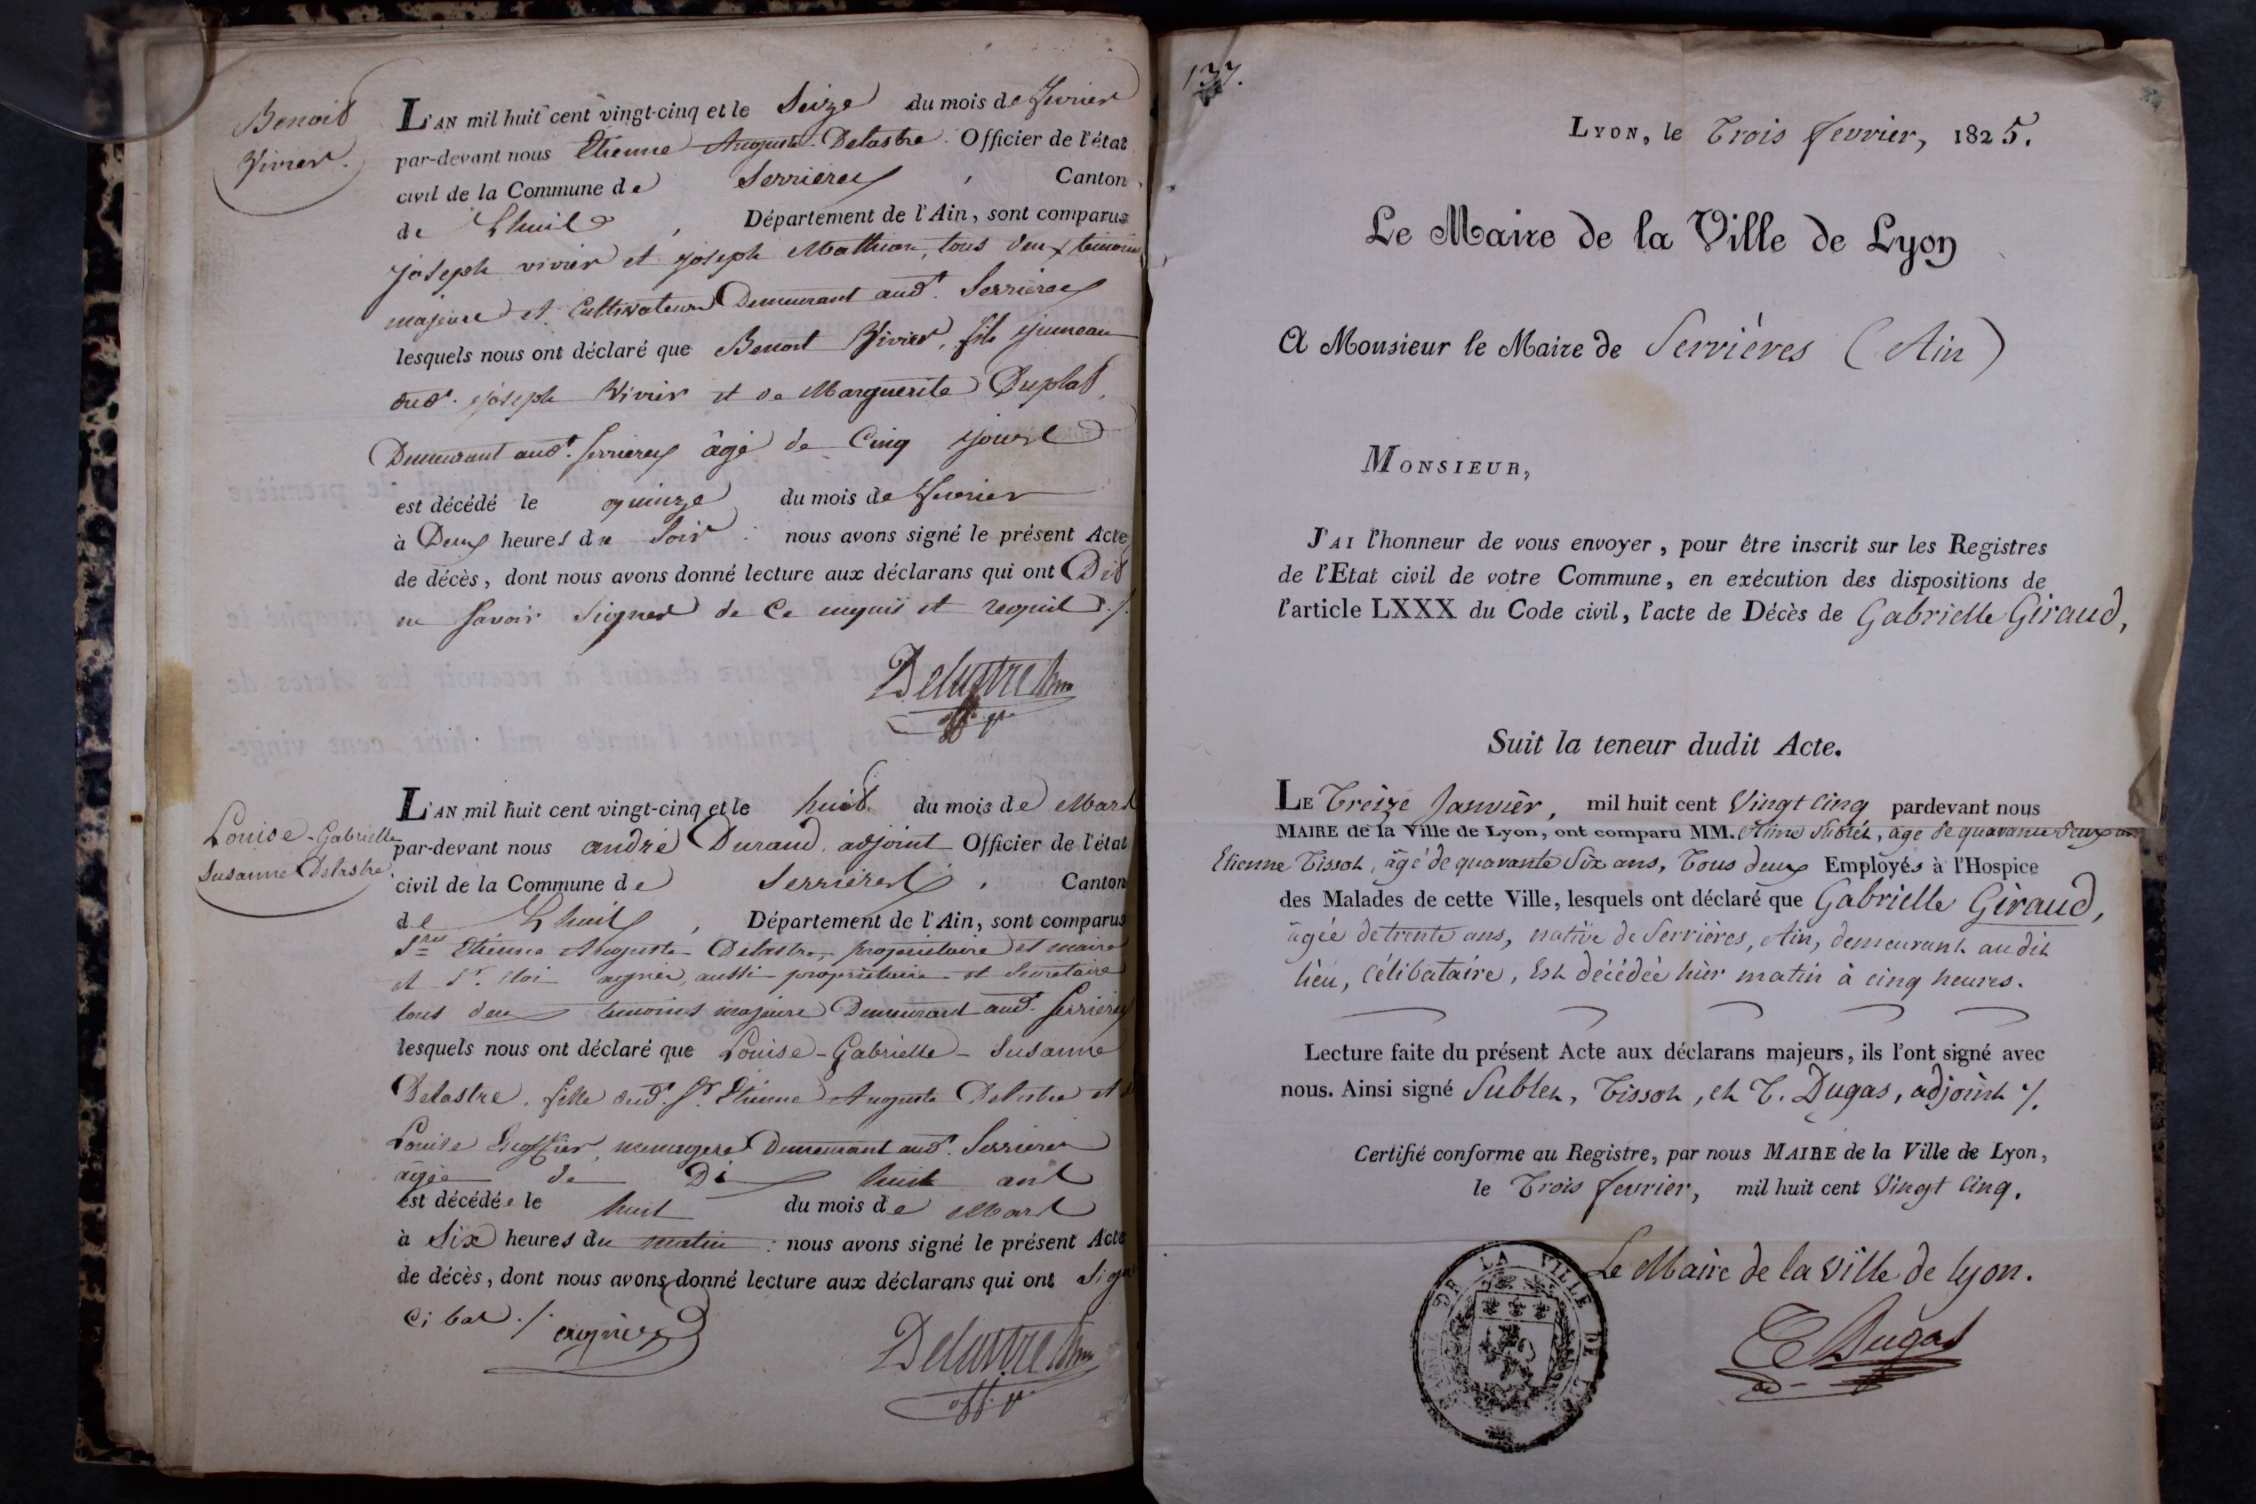 Benoit
Vivier.
L'AN mil huit cent vingt-cinq et le Seize du mois de fevrier
par-devant nous Etienne Auguste Delastre Officier de l'état
civil de la Commune de Serrieres, Canton
de Lhuis, Département de l'Ain, sont comparus
joseph vivier et joseph Mathian, tous deux temoins
majeurs et Cultivateurs Demeurant aud.t Serrieres
lesquels nous ont déclaré que Benoit Vivier, fils jumeau
dud.t joseph Vivier et de Marguerite Duplat,
Demeurant aud.t serrieres âgé de Cinq jours
est décédé le quinze du mois de fevrier
à Deux heures du Soir : nous avons signé le présent Acte
de décès, dont nous avons donné lecture aux déclarans qui ont Dit
ne savoir Signer de Ce enquis et requis ./.
Delastre
Louise-Gabrielle
Susanne Delastre
L'AN mil huit cent vingt-cinq et le huit du mois de Mars
par-devant nous andré Durand, adjoint Officier de l'état
civil de la Commune de Serrieres, Canton
de Lhuis, Département de l'Ain, sont comparus
Etienne Auguste Delastre, proprietaire et maire
et S.r aussi proprietaire et Secretaire
tous deux temoins majeurs Demeurant aud.t Serrieres
lesquels nous ont déclaré que Louise-Gabrielle-Susanne
Delastre, fille dud.t S.r Etienne Auguste Delastre et
Louise menagere Demeurant aud.t Serrieres
agée de Dix huit ans
est décédée le huit du mois de Mars
à Six heures du matin : nous avons signé le présent Acte
de décès, dont nous avons donné lecture aux déclarans qui ont Signé
Ci bas ./.
Delastre
137.
LYON, le Trois fevrier, 1825.
Le Maire de la Ville de Lyon
A Monsieur le Maire de Serrières (Ain)
MONSIEUR,
J'AI l'honneur de vous envoyer, pour être inscrit sur les Registres
de l'Etat civil de votre Commune, en exécution des dispositions de
l'article LXXX du Code civil, l'acte de Décès de Gabrielle Giraud,
Suit la teneur dudit Acte.
LE Treize Janvier, mil huit cent Vingt Cinq pardevant nous
MAIRE de la Ville de Lyon, ont comparu MM. Aimé Sublet, âgé de quarante deux ans
Etienne Tissot, âgé de quarante Six ans, Tous deux Employés à l'Hospice
des Malades de cette Ville, lesquels ont déclaré que Gabrielle Giraud,
âgée de trente ans, native de Serrières, Ain, demeurant audit
lieu, Célibataire, Est décédée hier matin à cinq heures.
Lecture faite du présent Acte aux déclarans majeurs, ils l'ont signé avec
nous. Ainsi signé Sublet, Tissot, et T. Dugas, adjoint ./.
Certifié conforme au Registre, par nous MAIRE de la Ville de Lyon,
le Trois fevrier, mil huit cent Vingt Cinq.
Le Maire de la ville de lyon.
DE LA VILLE DE
Dugas